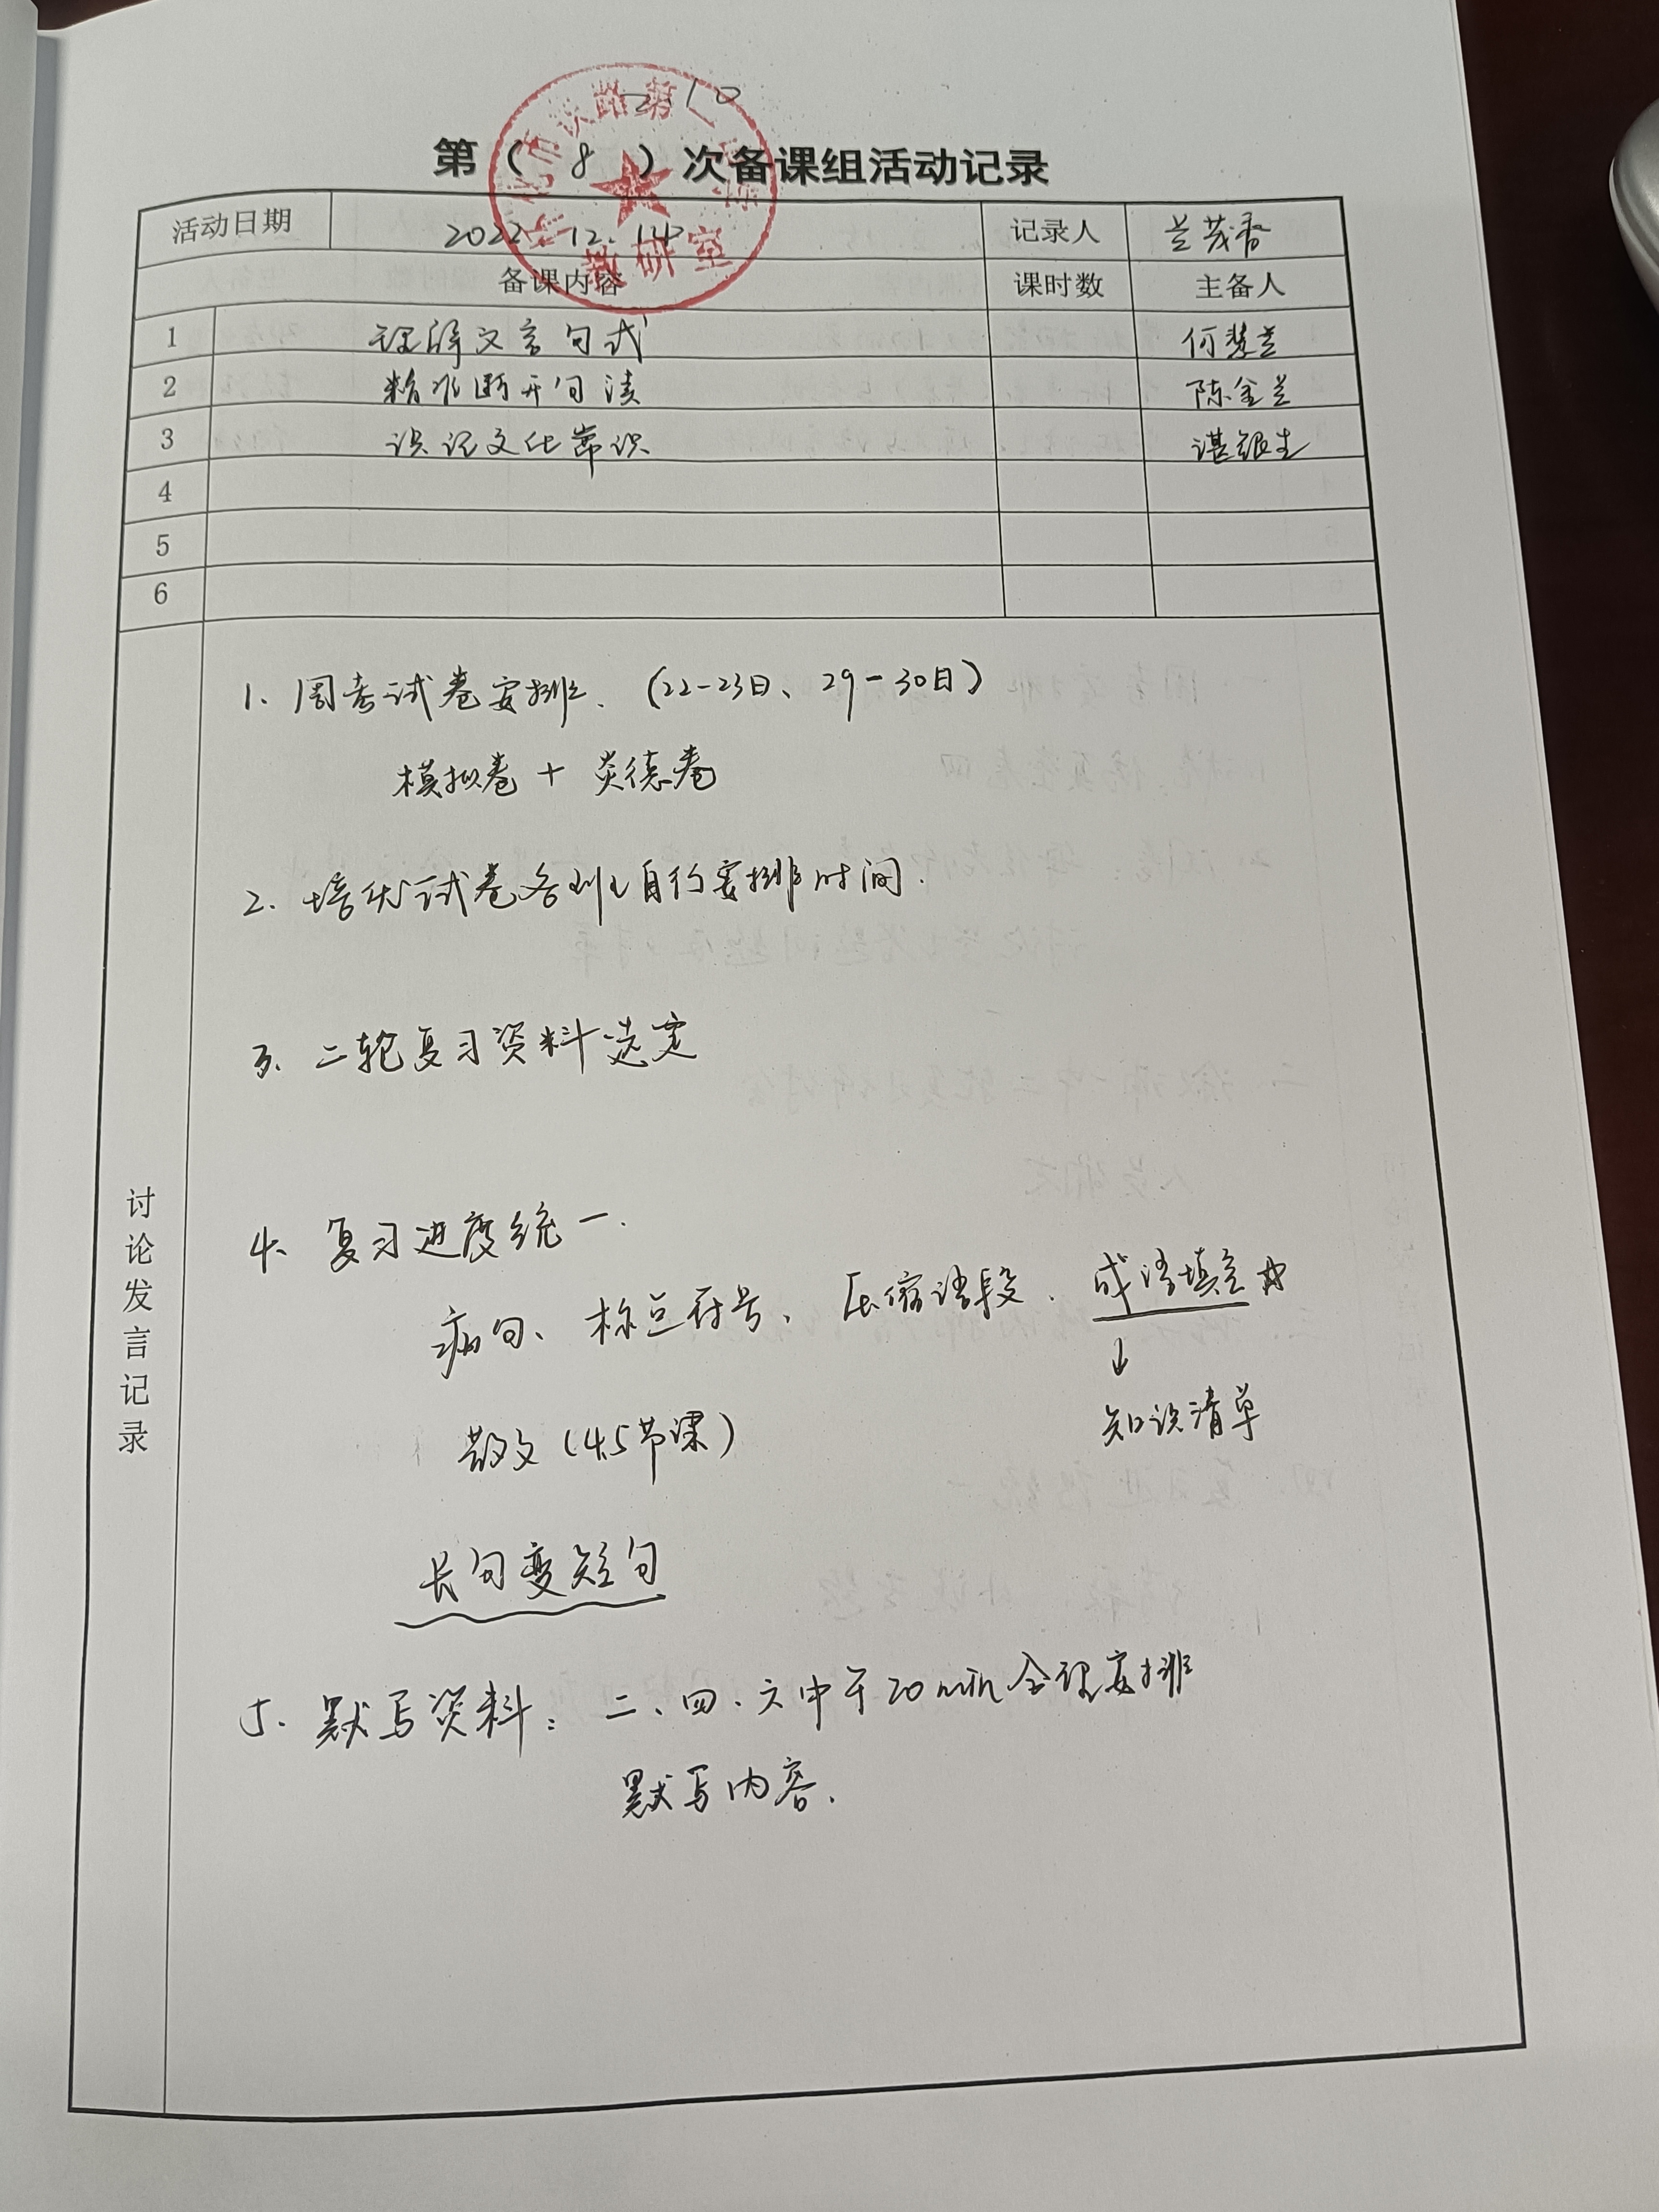 第（ 8 ）次备课组活动记录
活动日期 2022.12.14 记录人 兰茂香
备课内容 课时数 主备人
1 理解文言句式 何慧兰
2 精准断开句读 陈金兰
3 识记文化常识 谌银生
4
5
6
讨论发言记录
1、周考试卷安排、（22-23日、29-30日）
模拟卷 + 炎德卷
2、培优试卷各班自行安排时间.
3、二轮复习资料选定
4、复习进度统一.
病句、标点符号、压缩语段、成语填空
↓
知识清单
散文（4.5节课）
长句变短句
5、默写资料：二、四、六中午20min合理安排
默写内容.
教研室